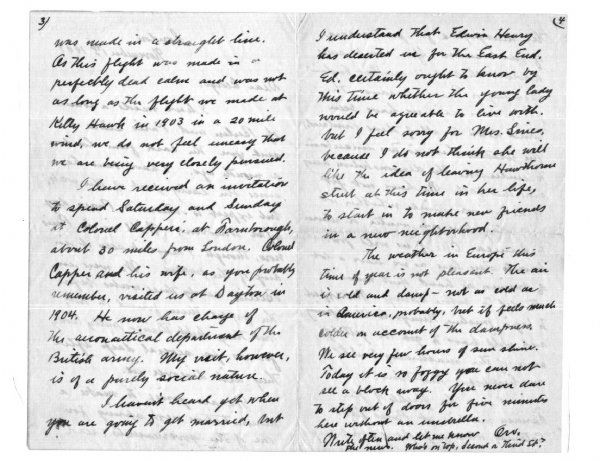 3)
was made in a straight line.
As this flight was made in a
perfectly dead calm and was not
as long as the flight we made at
Kitty Hawk in 1903 in a 20 mile
wind, we do not feel uneasy that
we are being very closely pursued.
I have received an invitation
to spend Saturday and Sunday
at Colonel Capper's, at Farnborough,
about 30 miles from London. Colonel
Capper and his wife, as you probably
remember, visited us at Dayton in
1904. He now has charge of
the aeronautical department of the
British army. My visit, however,
is of a purely social nature.
I haven't heard yet when
you are going to get married, but
4
I understand that Edwin Henry
has deserted us for the East End.
Ed. certainly ought to know by
this time whether the young lady
would be agreeable to live with.
but I feel sorry for Mrs. Sines,
because I do not think she will
like the idea of leaving Hawthorne
street at this time in her life,
to start in to make new friends
in a new neighborhood.
The weather in Europe this
time of year is not pleasant. The air
is cold and damp - not as cold as
in America, probably, but it feels much
colder on account of the dampness.
We see very few hours of sun shine.
Today it is so foggy you can not
see a block away. You never dare
to step out of doors for five minutes
here without an umbrella.
Write often and let me know Orv.
the news. Who's on top, Second or Third St.?